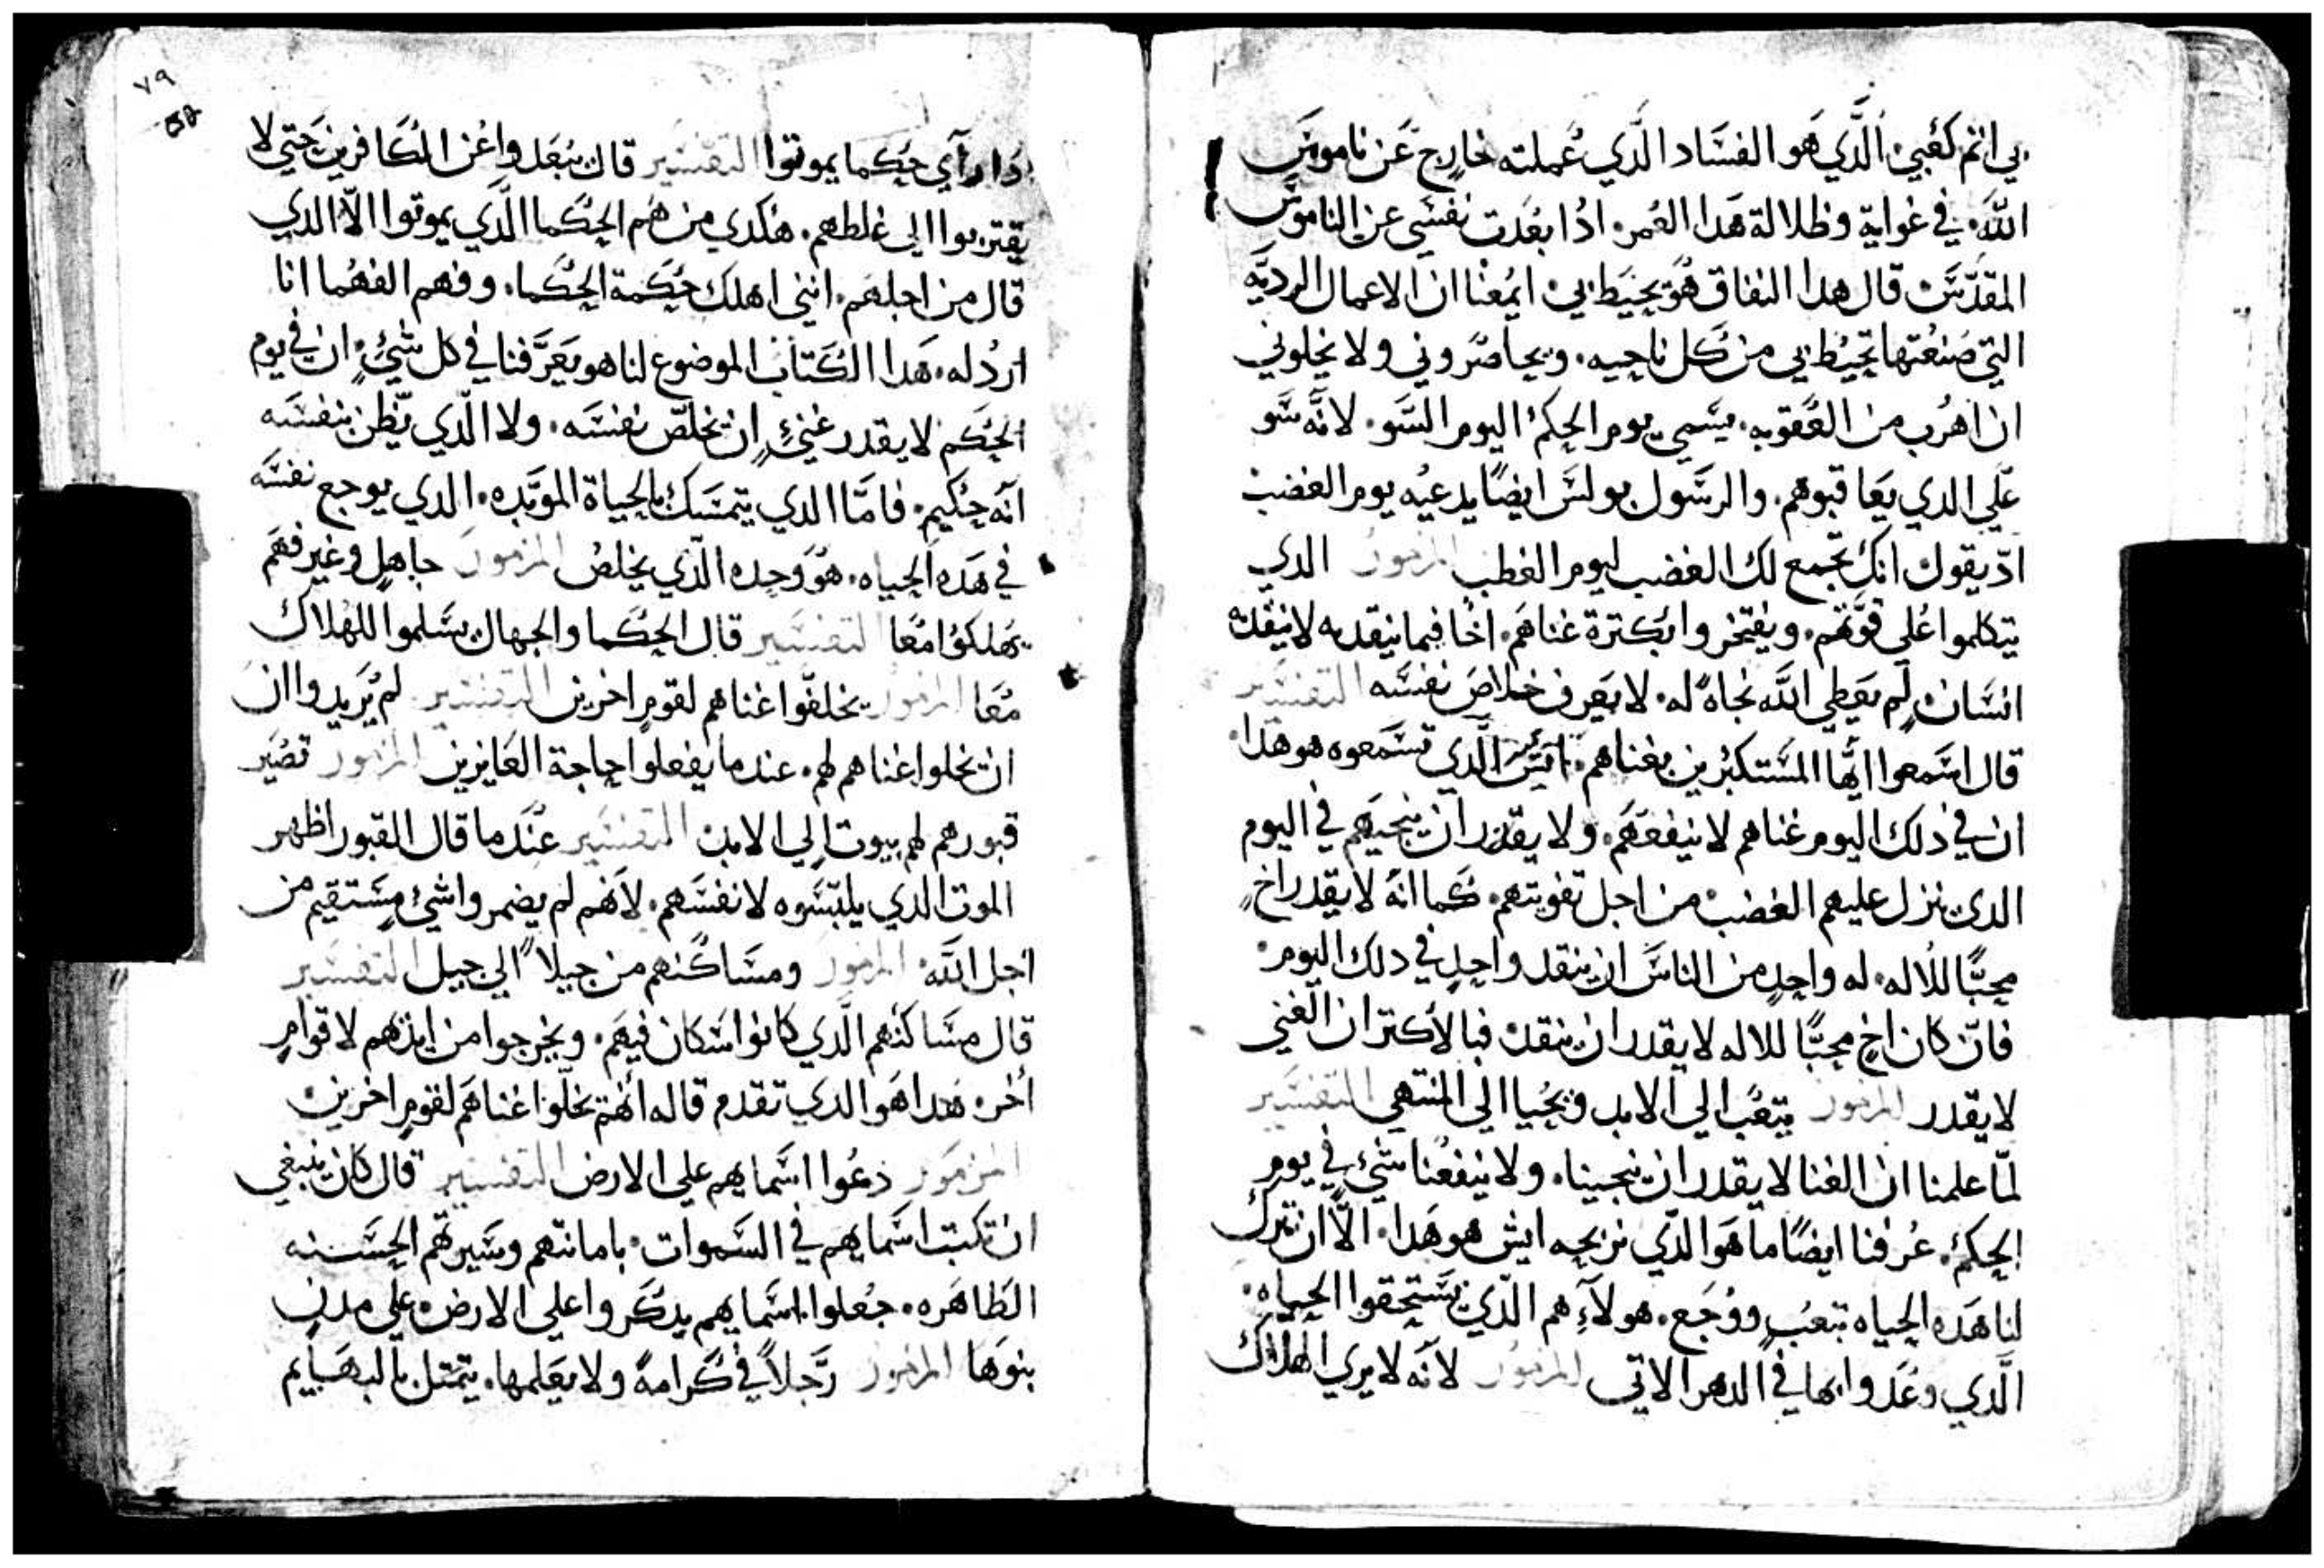 بي اثم كعبي الَّذي هو الفساد الَّذي عملته خارج عن ناموس
اللَّه في غواية وظلالة هدا العمر ادا بعدت نفسي عن الناموس
المقدَّس قال هدا النفاق هو يحيط بي ايمعنا ان الاعمال الرديَّه
التي صنعتها تحيط بي من كل ناحيه ويحاصروني ولا يخلوني
ان اهرب من العقوبه يسَّمي يوم الحكم اليوم السَّو لانَّه سَو
علي الدي يعاقبوهم والرسول بولس ايضًا يدعيه يوم الغضب
ادّ يقول انك تجمع لك الغضب ليوم الغظب المزمور الدي
يتكلموا علي قوَّتهم ويفتخروا بكترة غناهم اخًا فيما ينقد به لا ينقده
انسَان لم يعطي اللَّه نجاة له لا يعرف خلاص نفسَه التفسَير
قال اسَمعوا ايُّها المسَتكبرين بغناهم ايش الَّدي تسَمعوه هو هدا
ان في دلك اليوم غناهم لا ينفعهم ولا يقدر ان ينجيهم في اليوم
الدي ينزل عليهم الغضب من اجل تفويتهم كما انَّه لا يقدر اخٍ
محبًّا للاله له واحدٍ من الناسَ ان ينقد واحدٍ في دلك اليوم
فانّ كان اخٍ محبًّا للاله لا يقدر ان ينقد فبالأكتر ان الغني
لا يقدر المزمور يتعب الي الابد ويحيا الي المنتهي التفسَير
لمّا علمنا ان الغنا لا يقدر ان ينجينا ولا ينفعنا شيء في يوم
الحكم عرفنا ايضًا ما هو الدّي نربحه ايش هو هدا الاّ ان نترك
لنا هده الحياه بتعب ووجع هولآءِ هم الدّي يسَتحقوا الحياه
الَّدي وعَدوا بها في الدهر الاتي المزمور لانَّه لا يري الهلاك
٧٩
ادا رآي حكما يموتوا التفسَير قال يبعدوا عن الكافرين حتي لا
يقتربوا الي غلطهم هكدي من هم الحكما الَّدي يموتوا الاّ الدي
قال من اجلهم انني اهلك حكمة الحكما وفهم الفهما انا
اردُله هدا الكتاب الموضوع لنا هو يعرَّفنا في كل شيءٍ ان في يوم
الحكم لا يقدر غنيٍ ان يخلّص نفسَه ولا الّدي يظن بنفسَه
انَّه حكيم فامَّا الدي يتمسَك بالحياة الموبَّده الدي يوجع نفسَه
في هده الحياه هو وحده الّدي يخلص المزمور جاهل وغير فهم
يهلكوا معًا التفسَير قال الحكما والجهال يسَلموا للهلاك
معًا المزمور يخلفّوا غناهم لقوم اخرين التفسَير لم يريدوا ان
ان يخلوا غناهم لهم عند ما يفعلوا حاجة العايزين المزمور تصَير
قبورهم لهم بيوت الي الابد التفسَير عند ما قال القبور اظهر
الموت الدي يلبسَوه لانفسَهم لانهم لم يضمروا شيء مسَتقيم من
اجل اللَّه المزمور ومسَاكنهم من جيلاً الي جيل التفسَير
قال مسَاكنهم الَّدي كانوا سَكان فيهم ويخرجوا من ايدهم لاقوام
أخر هدا هو الدي تقدم قاله انهم يخلّوا غناهم لقوم اخرين
المزمور دعوا اسَمايهم علي الارض التفسَير قال كان ينبغي
ان تكتب اسَمايهم في السَموات بامانتهم وسَيرتهم الحسَنه
الطاهره جعلوا اسَمايهم يدكروا علي الارض علي مدن
بنوها المزمور رَجلاً في كرامةً ولا يعَلمها يتمتل بالبهايم